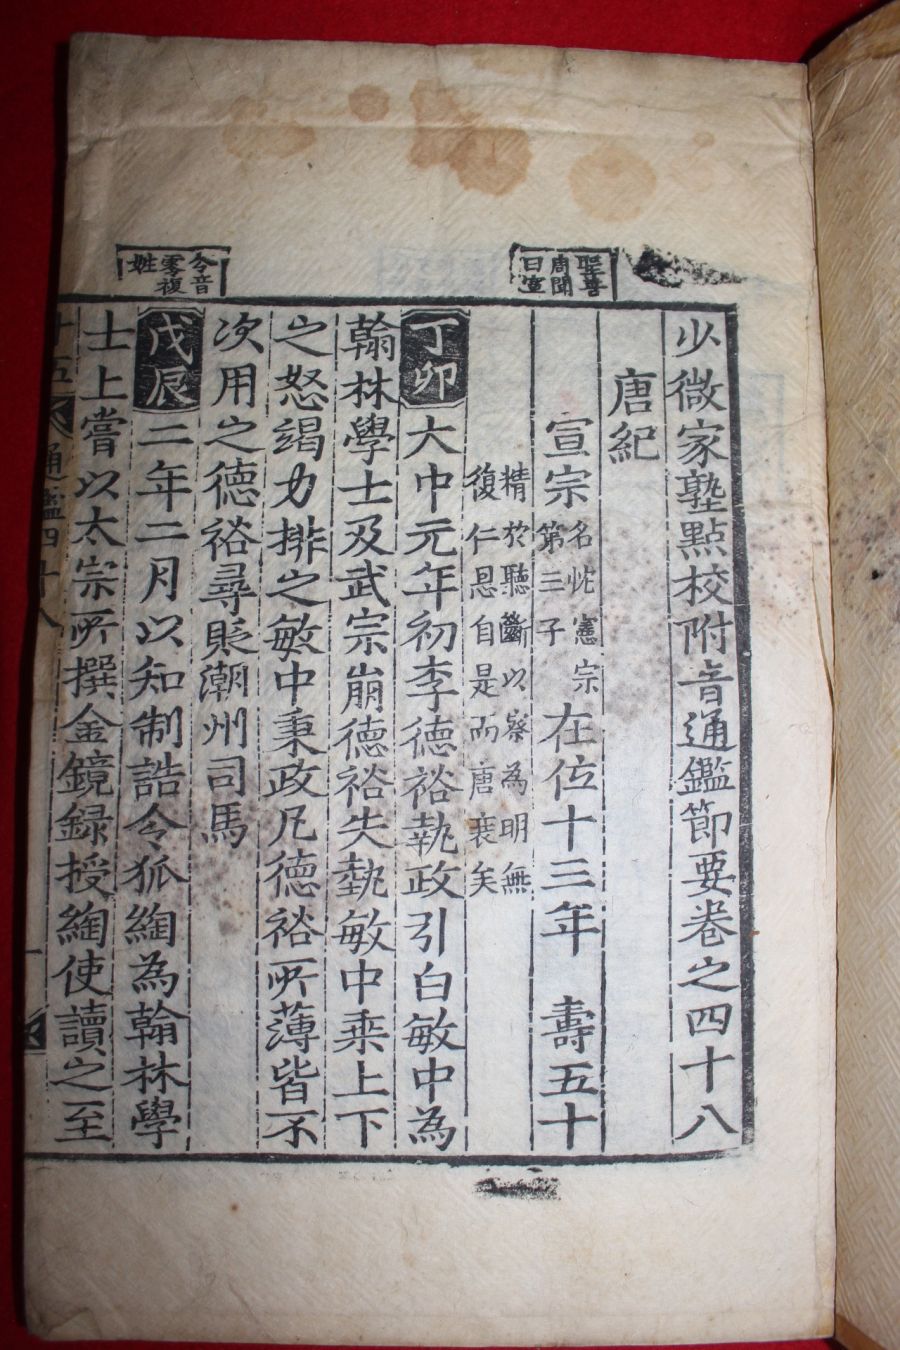 少微家塾點校附音通鑑節要卷之四十八
唐紀
宣宗
名忱憲宗
第三子
在位十三年 壽五十
精於聽斷以察為明無
復仁恩自是而唐衰矣
聖善
周聞
曰宣
丁卯大中元年初李德裕執政引白敏中為
翰林學士及武宗崩德裕失勢敏中乘上下
之怒竭力排之敏中秉政凡德裕所薄皆不
次用之德裕尋貶潮州司馬
令音
零複
姓
戊辰二年二月以知制誥令狐綯為翰林學
士上嘗以太宗所撰金鏡録授綯使讀之至
十五
通鑑四十八
一